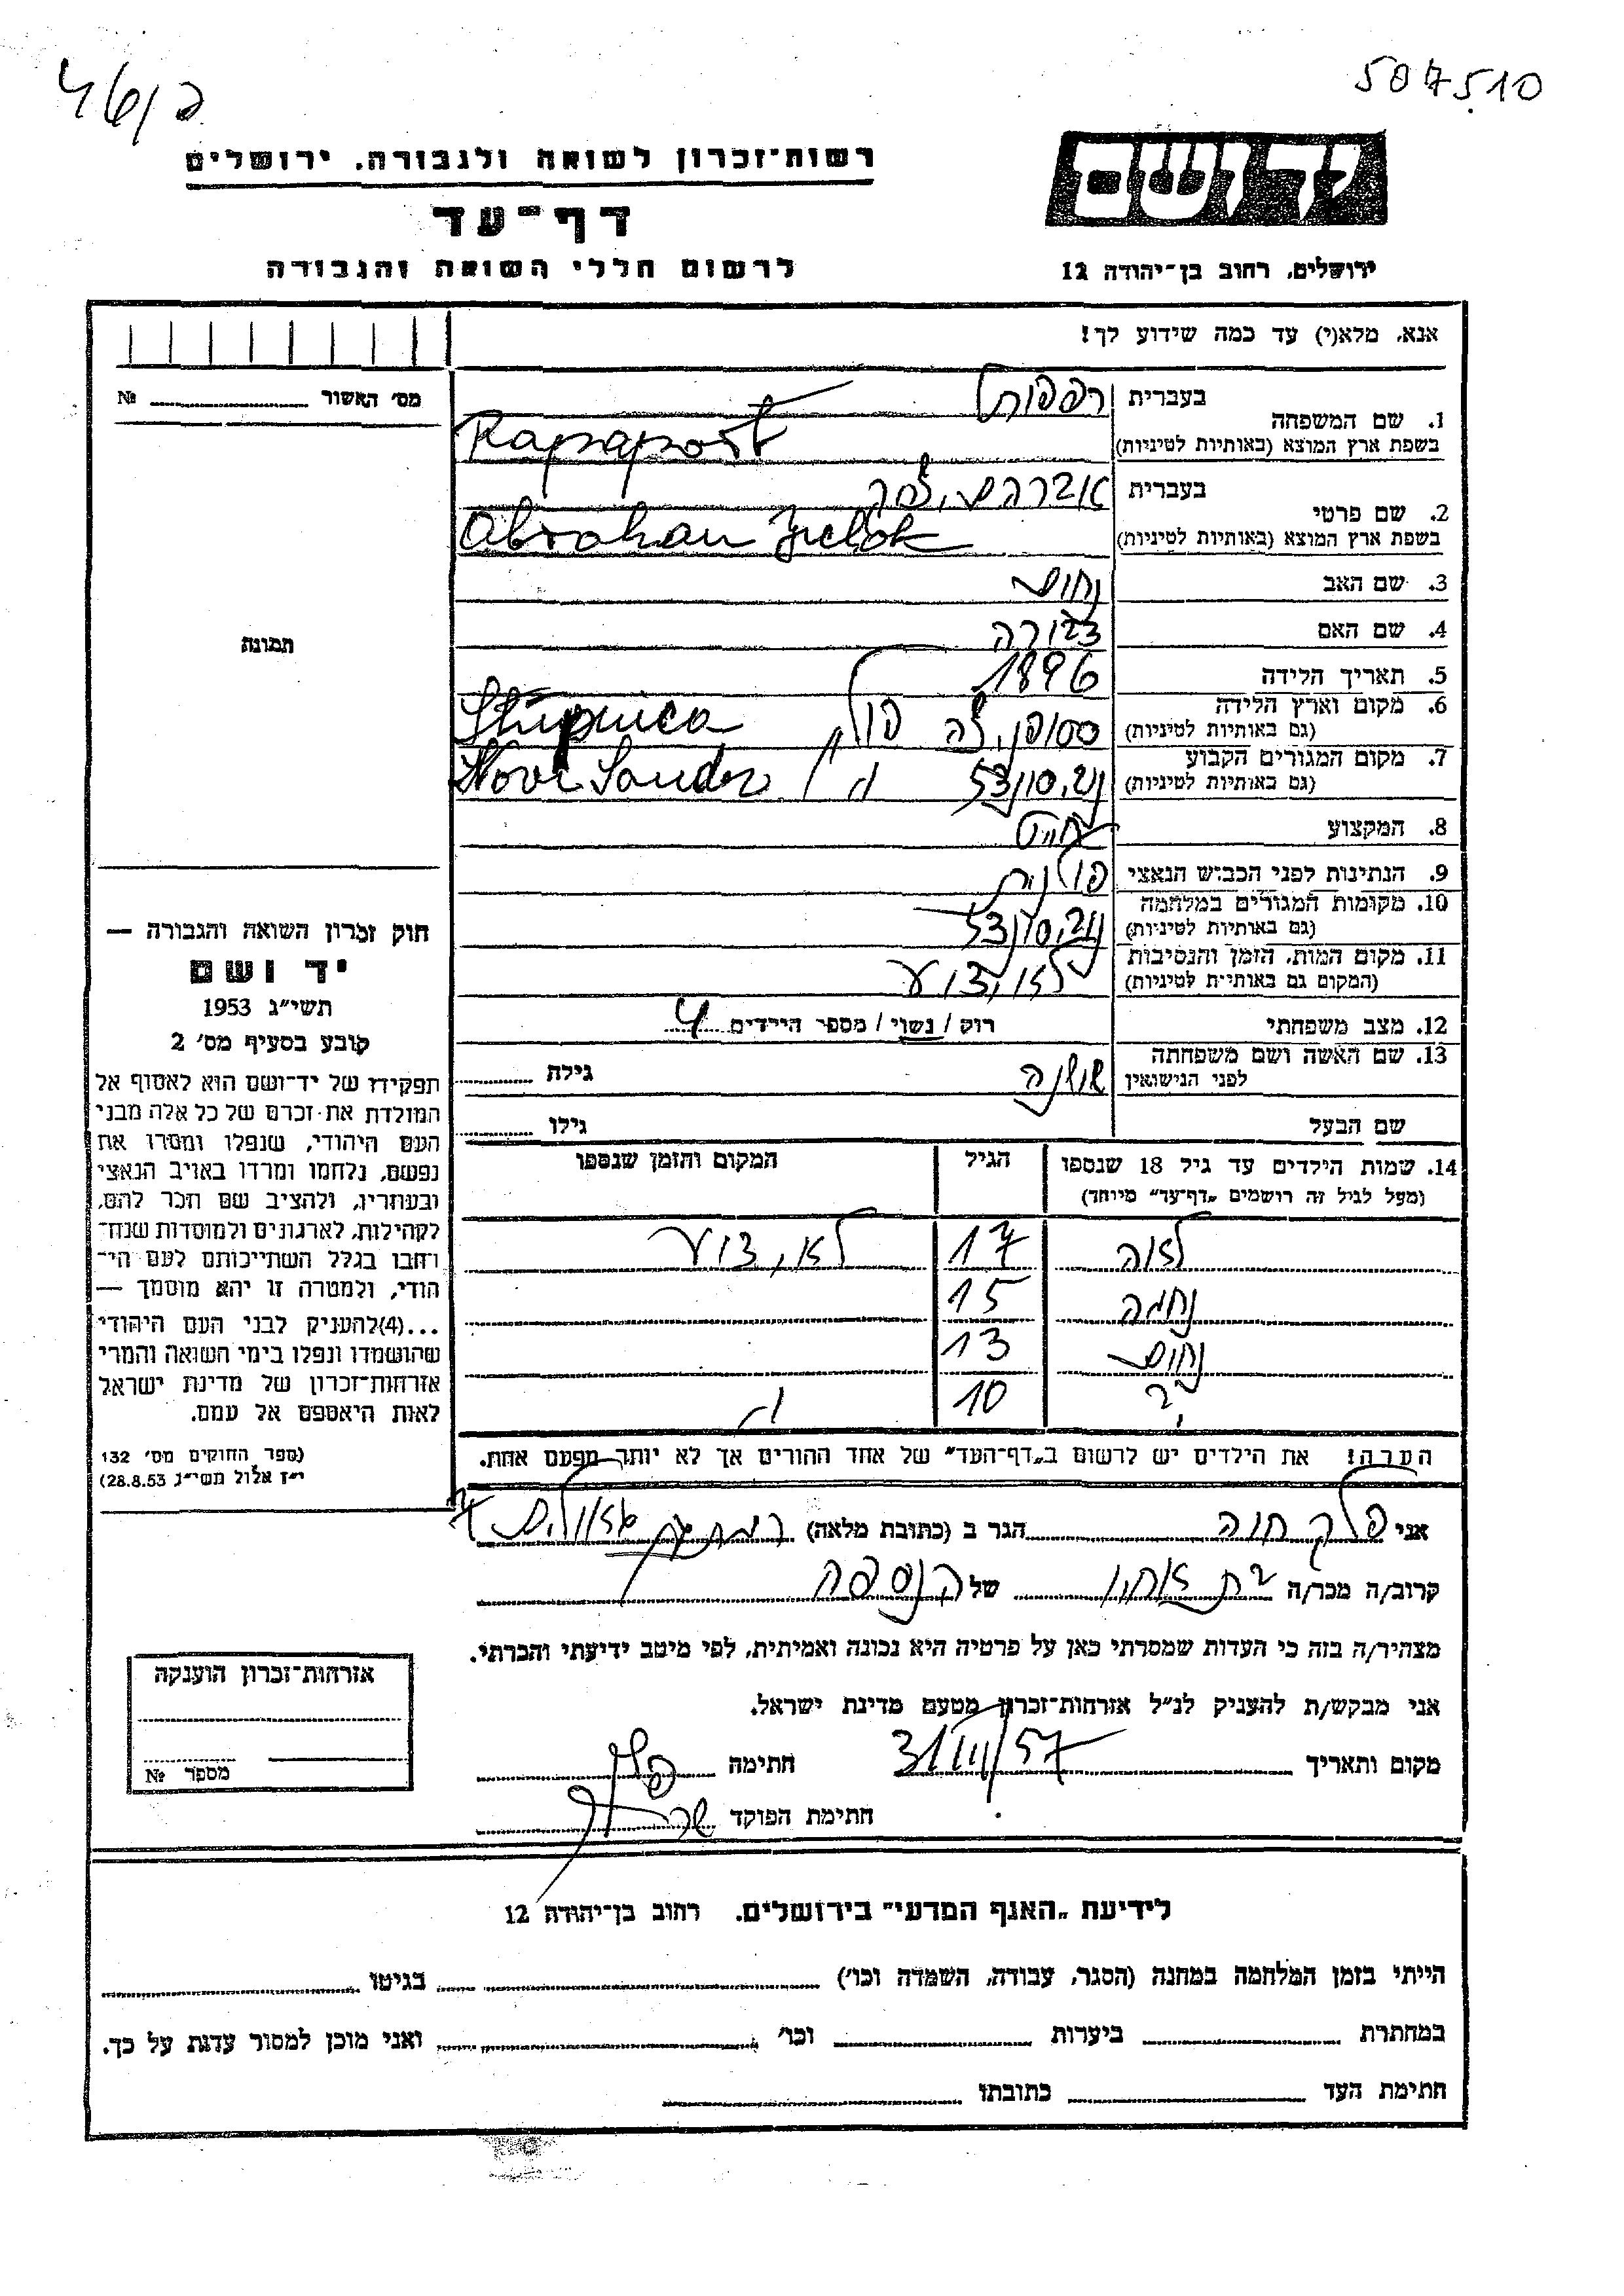 46/ב
507510
יד ושם
ירושלים, רחוב בן־יהודה 12
רשות־זכרון לשואה ולגבורה, ירושלים
דף־עד
לרשום חללי השואה והגבורה
אנא, מלא(י) עד כמה שידוע לך!
מס׳ האשור № 
תמונה
חוק זכרון השואה והגבורה —
יד ושם
תשי״ג 1953
קובע בסעיף מס׳ 2
תפקידו של יד־ושם הוא לאסוף אל
המולדת את זכרם של כל אלה מבני
העם היהודי, שנפלו ומסרו את
נפשם, נלחמו ומרדו באויב הנאצי
ובעוזריו, ולהציב שם וזכר להם,
לקהילות, לארגונים ולמוסדות שנח־
רחבו בגלל השתייכותם לעם הי־
הודי, ולמטרה זו יהא מוסמך —
...(4)להעניק לבני העם היהודי
שהושמדו ונפלו בימי השואה והמרי
אזרחות־זכרון של מדינת ישראל
לאות היאספם אל עמם.
(ספר החוקים מס׳ 132
י״ז אלול תשי״ג 28.8.53)
1. שם המשפחה
בעברית רפפורט
בשפת ארץ המוצא (באותיות לטיניות) Rapaport
2. שם פרטי
בעברית אברהם
בשפת ארץ המוצא (באותיות לטיניות) Abraham
3. שם האב נחום
4. שם האם דבורה
5. תאריך הלידה 1896
6. מקום וארץ הלידה
(גם באותיות לטיניות) פולין
7. מקום המגורים הקבוע
(גם באותיות לטיניות)
8. המקצוע חייט
9. הנתינות לפני הכבוש הנאצי פולנית
10. מקומות המגורים במלחמה
(גם באותיות לטיניות)
11. מקום המות, הזמן והנסיבות
(המקום גם באותיות לטיניות) לא ידוע
12. מצב משפחתי רוק / נשוי / מספר הילדים 4
13. שם האשה ושם משפחתה
לפני הנישואין שושנה גילה
שם הבעל גילו
14. שמות הילדים עד גיל 18 שנספו
(מעל לגיל זה רושמים „דף־עד״ מיוחד)
הגיל
המקום והזמן שנספו
לאה 17 לא ידוע
נחמה 15
נחום 13
? 10 "
הערה! את הילדים יש לרשום ב„דף־העד״ של אחד ההורים אך לא יותר מפעם אחת.
אני פלק חוה הגר ב (כתובת מלאה)
קרוב/ה מכר/ה בת אחיו של הנספה
מצהיר/ה בזה כי העדות שמסרתי כאן על פרטיה היא נכונה ואמיתית, לפי מיטב ידיעתי והכרתי.
אני מבקש/ת להעניק לנ״ל אזרחות־זכרון מטעם מדינת ישראל.
מקום ותאריך 31/III/57 חתימה פלק
חתימת הפוקד
אזרחות־זכרון הוענקה
מספר №
לידיעת „האגף המדעי״ בירושלים, רחוב בן־יהודה 12
הייתי בזמן המלחמה במחנה (הסגר, עבודה, השמדה וכו׳) בגיטו
במחתרת ביערות וכו׳ ואני מוכן למסור עדות על כך.
חתימת העד כתובתו